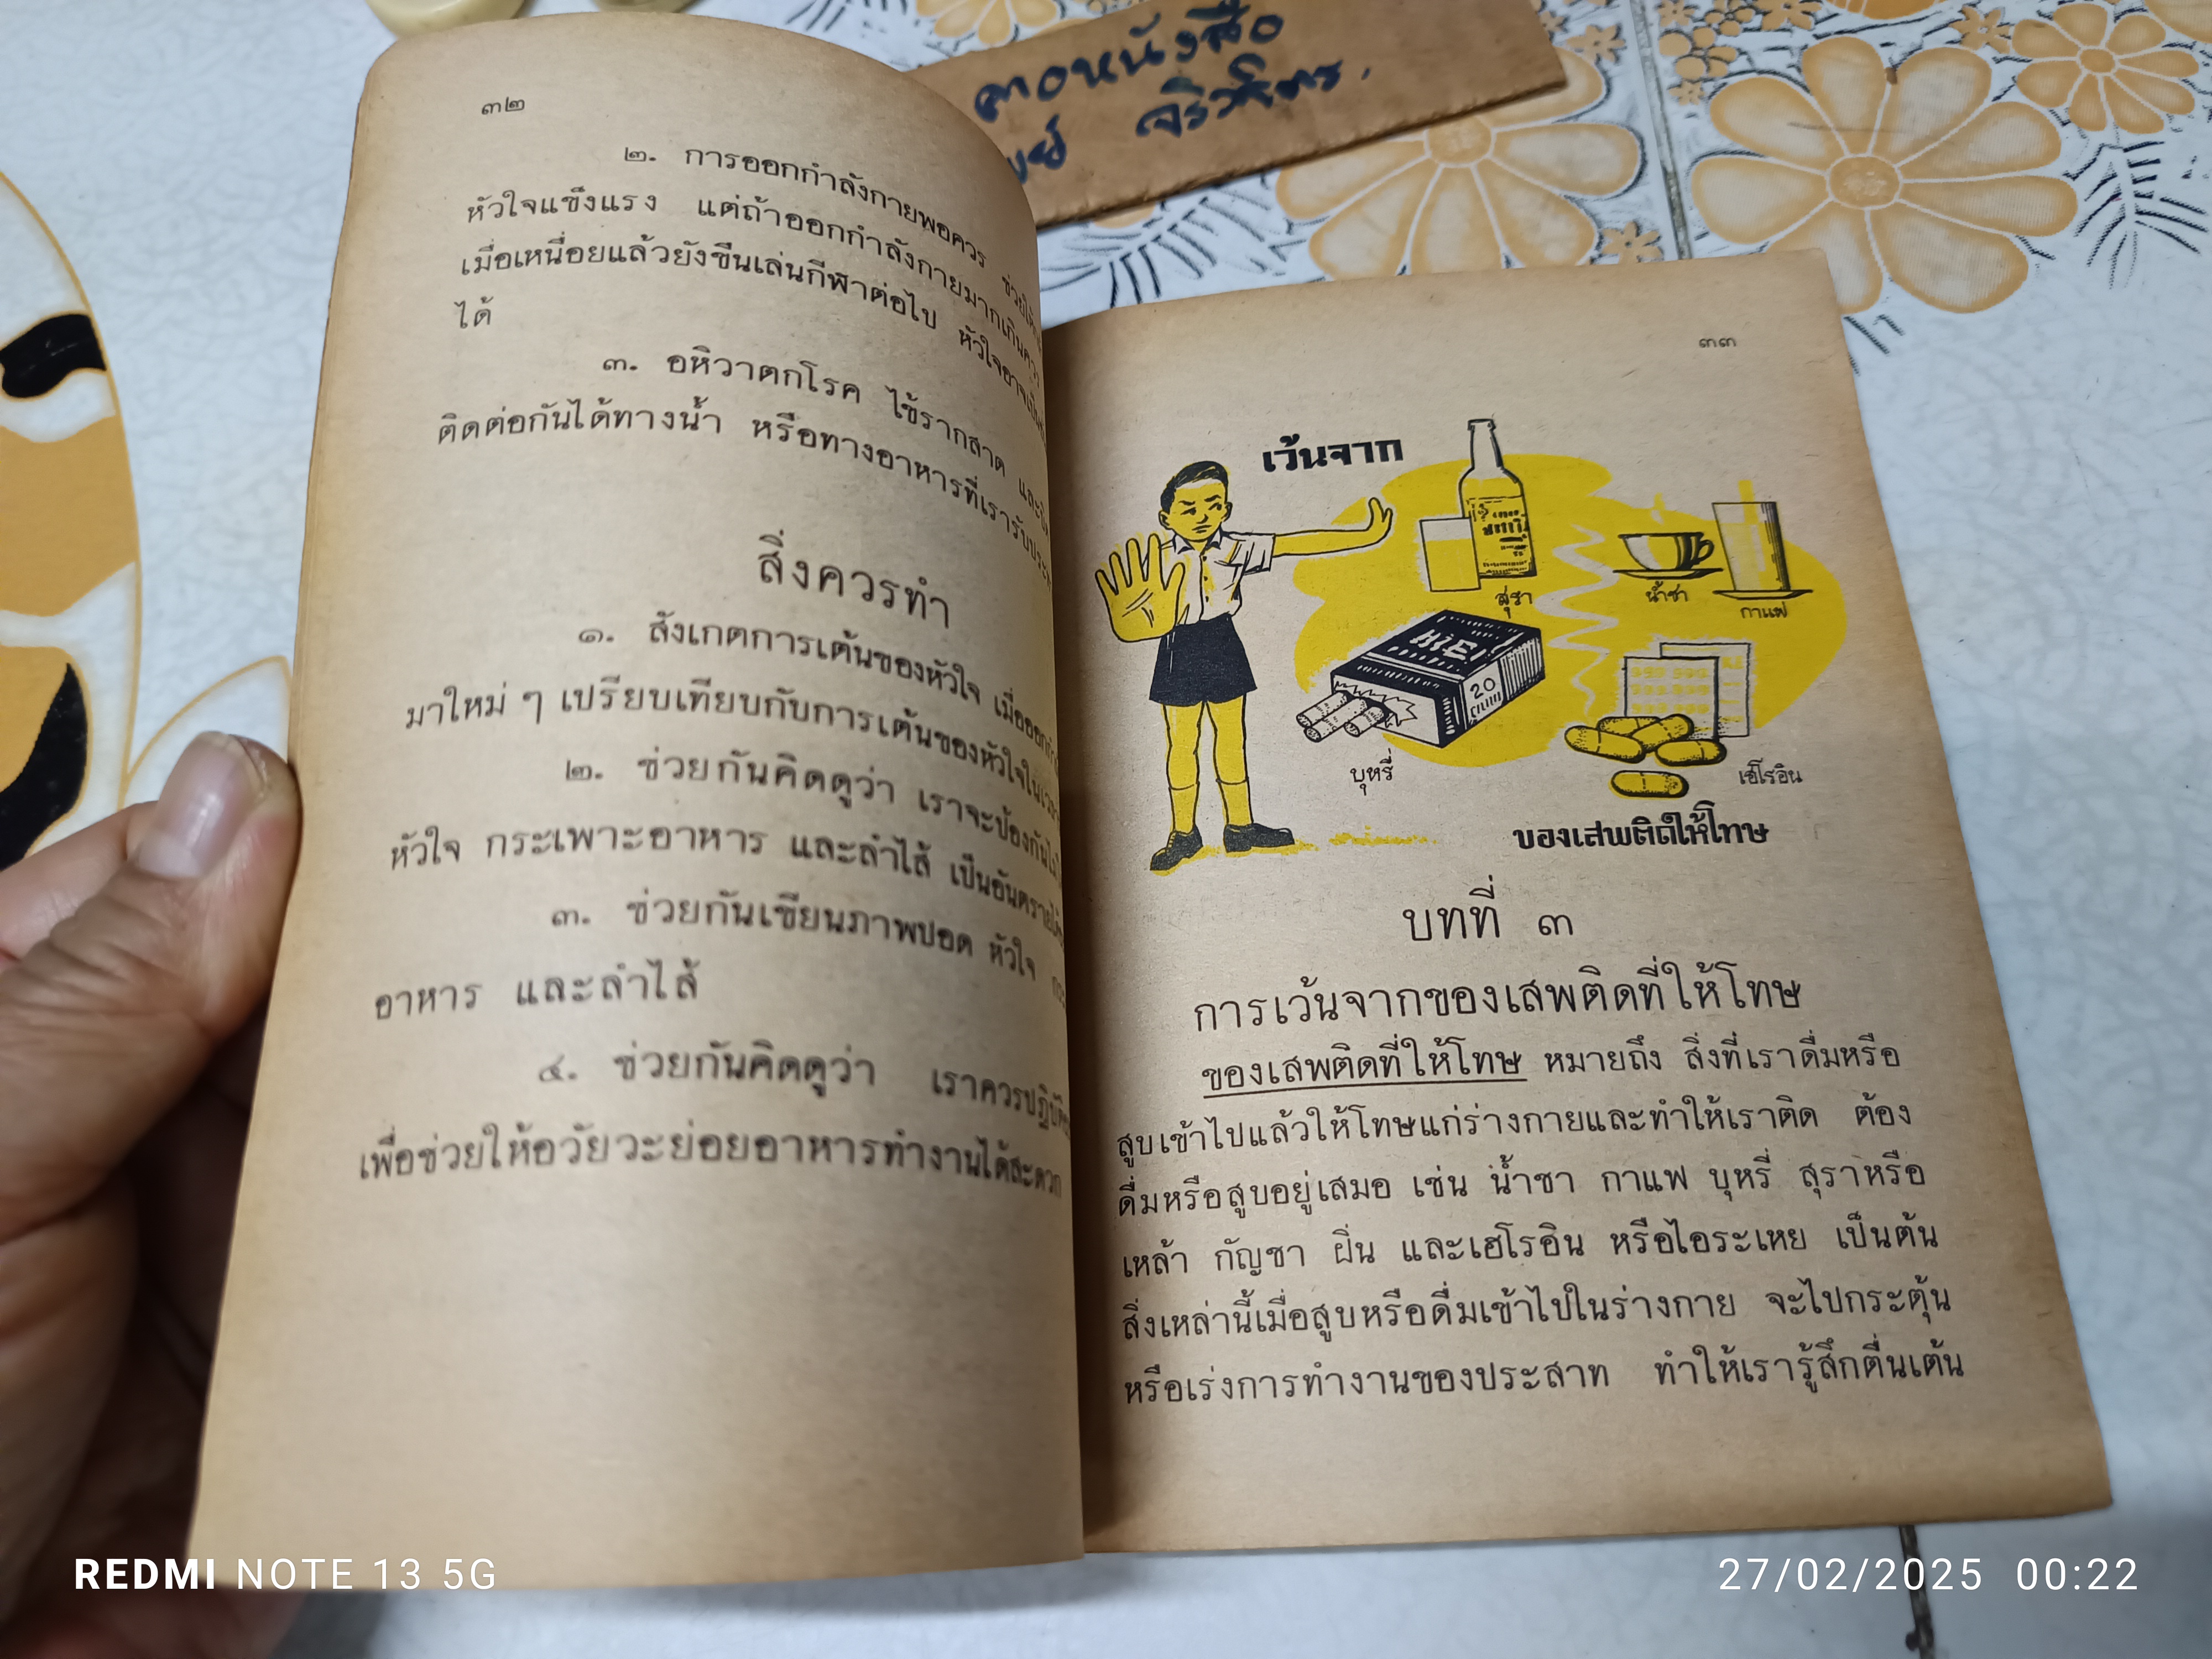 คอหนังสือ
จริวัฒิตร.
๓๒
๒. การออกกำลังกายพอควร ช่วยให้
หัวใจแข็งแรง แต่ถ้าออกกำลังกายมากเกินควร
เมื่อเหนื่อยแล้วยังขืนเล่นกีฬาต่อไป หัวใจอาจ
ได้
๓. อหิวาตกโรค ไข้รากสาด และ
ติดต่อกันได้ทางน้ำ หรือทางอาหารที่เรารับประ
สิ่งควรทำ
๑. สังเกตการเต้นของหัวใจ เมื่อออก
มาใหม่ ๆ เปรียบเทียบกับการเต้นของหัวใจใน
๒. ช่วยกันคิดดูว่า เราจะป้องกัน
หัวใจ กระเพาะอาหาร และลำไส้ เป็นอันตราย
๓. ช่วยกันเขียนภาพปอด หัวใจ
อาหาร และลำไส้
๔. ช่วยกันคิดดูว่า เราควรปฏิบัติ
เพื่อช่วยให้อวัยวะย่อยอาหารทำงานได้สะดวก
๓๓
เว้นจาก
สุรา
น้ำชา
กาแฟ
20
บุหรี่
เฮโรอิน
ของเสพติดให้โทษ
บทที่ ๓
การเว้นจากของเสพติดที่ให้โทษ
ของเสพติดที่ให้โทษ หมายถึง สิ่งที่เราดื่มหรือ
สูบเข้าไปแล้วให้โทษแก่ร่างกายและทำให้เราติด ต้อง
ดื่มหรือสูบอยู่เสมอ เช่น น้ำชา กาแฟ บุหรี่ สุราหรือ
เหล้า กัญชา ฝิ่น และเฮโรอิน หรือไอระเหย เป็นต้น
สิ่งเหล่านี้เมื่อสูบหรือดื่มเข้าไปในร่างกาย จะไปกระตุ้น
หรือเร่งการทำงานของประสาท ทำให้เรารู้สึกตื่นเต้น
REDMI NOTE 13 5G
27/02/2025 00:22